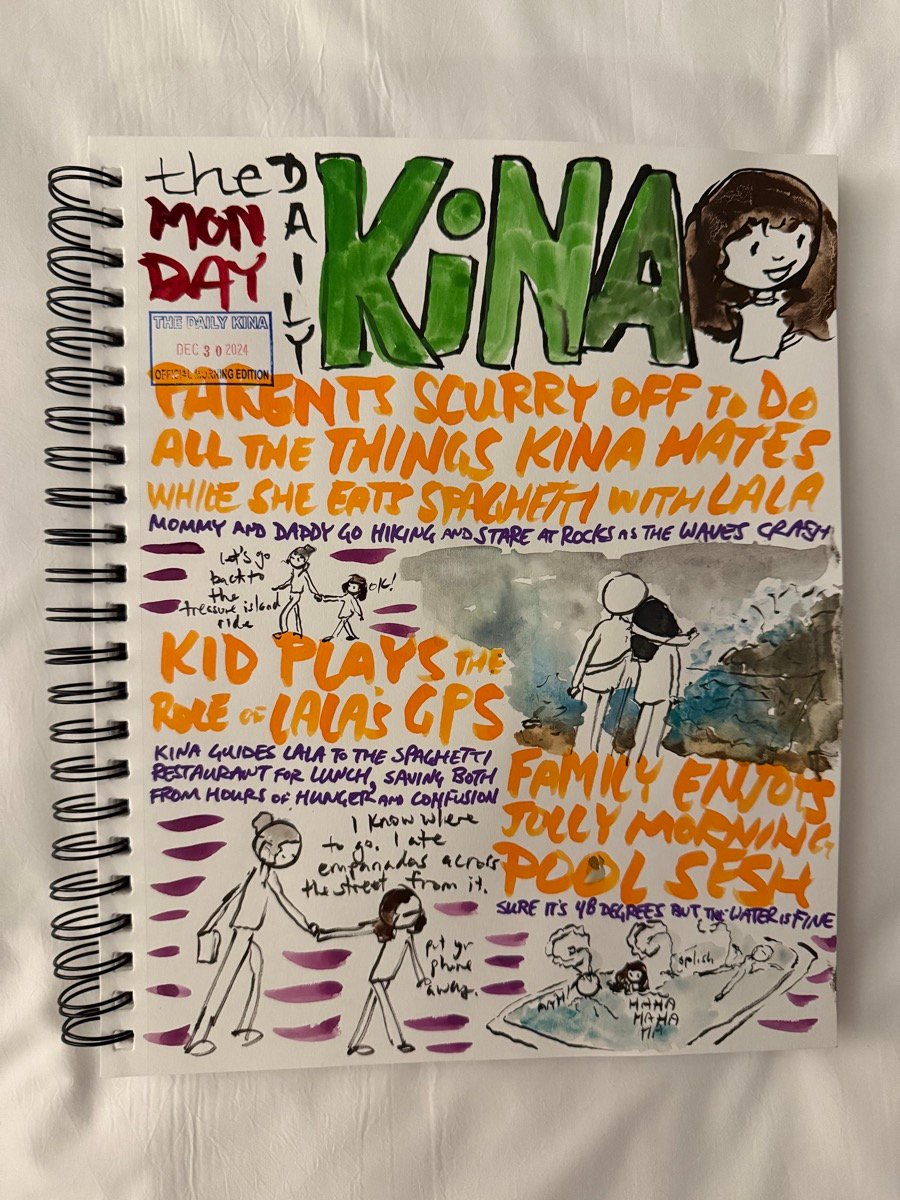 the
MON
DAY
DAILY
KiNA
THE DAILY KINA
DEC 30 2024
OFFICIAL MORNING EDITION
PARENTS SCURRY OFF TO DO
ALL THE THINGS KINA HATES
WHILE SHE EATS SPAGHETTI WITH LALA
MOMMY AND DADDY GO HIKING AND STARE AT ROCKS AS THE WAVES CRASH
Let's go
back to
the
treasure island
ride
OK!
KID PLAYS THE
ROLE OF LALA'S GPS
KINA GUIDES LALA TO THE SPAGHETTI
RESTAURANT FOR LUNCH, SAVING BOTH
FROM HOURS OF HUNGER AND CONFUSION
I know where
to go. I ate
empanadas across
the street from it.
put yr
phone
away.
FAMILY ENJOYS
JOLLY MORNING
POOL SESH
SURE IT'S 48 DEGREES BUT THE WATER IS FINE
splish
HAHA
HAHA